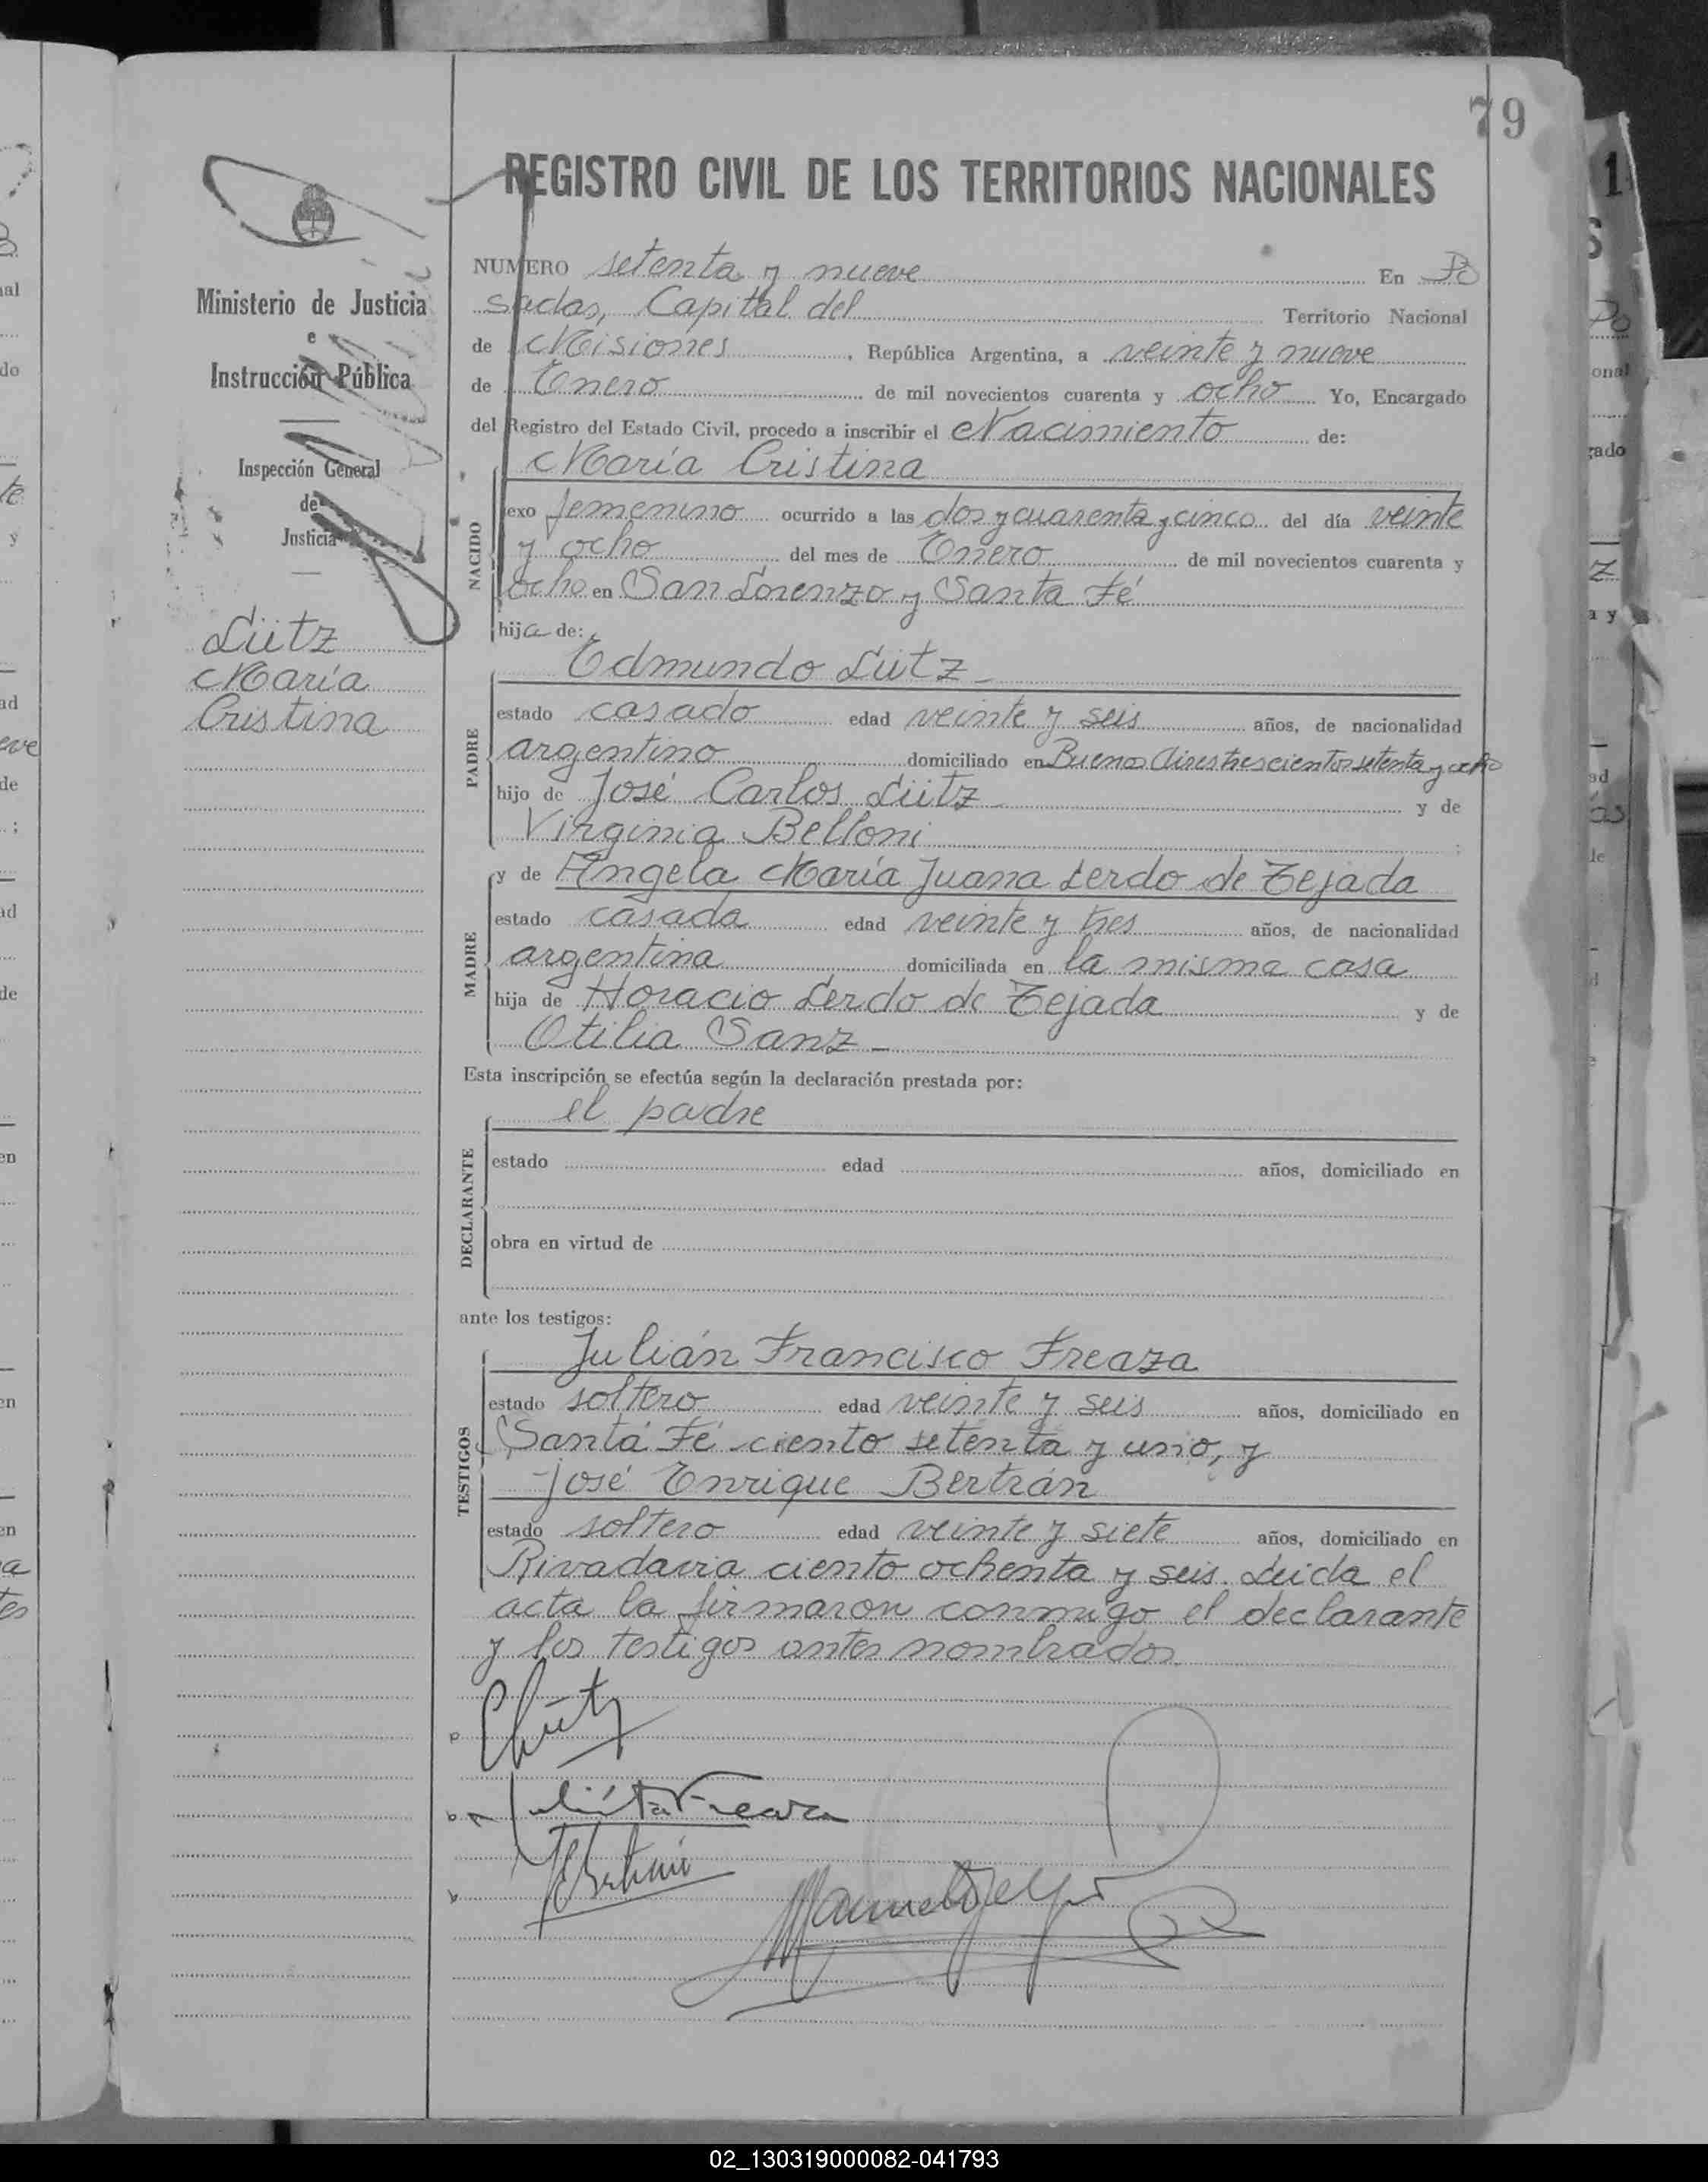 79
REGISTRO CIVIL DE LOS TERRITORIOS NACIONALES
Ministerio de Justicia
e
Instrucción Pública
Inspección General
de
Justicia
Lütz
María
Cristina
NUMERO setenta y nueve En Po
sadas, Capital del Territorio Nacional
de Misiones, República Argentina, a veinte y nueve
de Enero de mil novecientos cuarenta y ocho Yo, Encargado
del Registro del Estado Civil, procedo a inscribir el Nacimiento de:
María Cristina
NACIDO
sexo femenino ocurrido a las dos y cuarenta y cinco del día veinte
y ocho del mes de Enero de mil novecientos cuarenta y
ocho en San Lorenzo y Santa Fé
hija de:
Edmundo Lütz
PADRE
estado casado edad veinte y seis años, de nacionalidad
argentino domiciliado en Buenos Aires trescientos setenta y ocho
hijo de José Carlos Lütz y de
Virginia Belloni
y de Angela María Juana Lerdo de Tejada
MADRE
estado casada edad veinte y tres años, de nacionalidad
argentina domiciliada en la misma casa
hija de Horacio Lerdo de Tejada y de
Otilia Sanz
Esta inscripción se efectúa según la declaración prestada por:
el padre
DECLARANTE
estado edad años, domiciliado en
obra en virtud de
ante los testigos:
Julián Francisco Freaza
TESTIGOS
estado soltero edad veinte y seis años, domiciliado en
Santa Fé ciento setenta y uno, y
José Enrique Bertrán
estado soltero edad veinte y siete años, domiciliado en
Rivadavia ciento ochenta y seis. Leida el
acta la firmaron conmigo el declarante
y los testigos antes nombrados
02_130319000082-041793